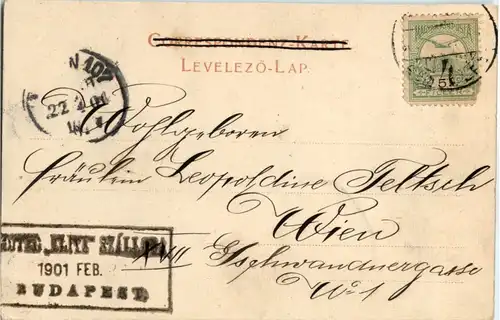 CORRESPONDENZ-KARTE
LEVELEZŐ-LAP.
MAGYAR KIR. POSTA
Wohlgeboren
Fräulein Leopoldine Teltsch
Wien
XVII Gschwandnergasse
No 1
"ELITE" SZÁLLODA
1901 FEB.
BUDAPEST.